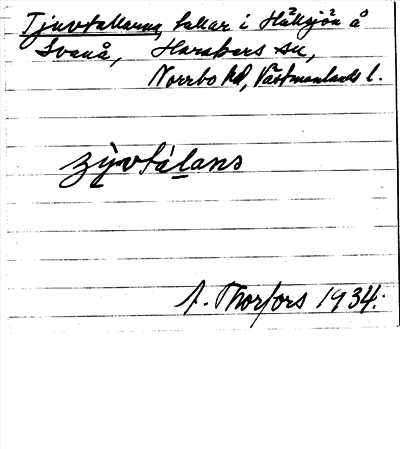 Tjuvtallarna, tallar i Hällsjön å
Svanå, Harakers sn,
Norrbo hd, Västmanlands l.
zỳvtálans
A. Thorfors 1934.